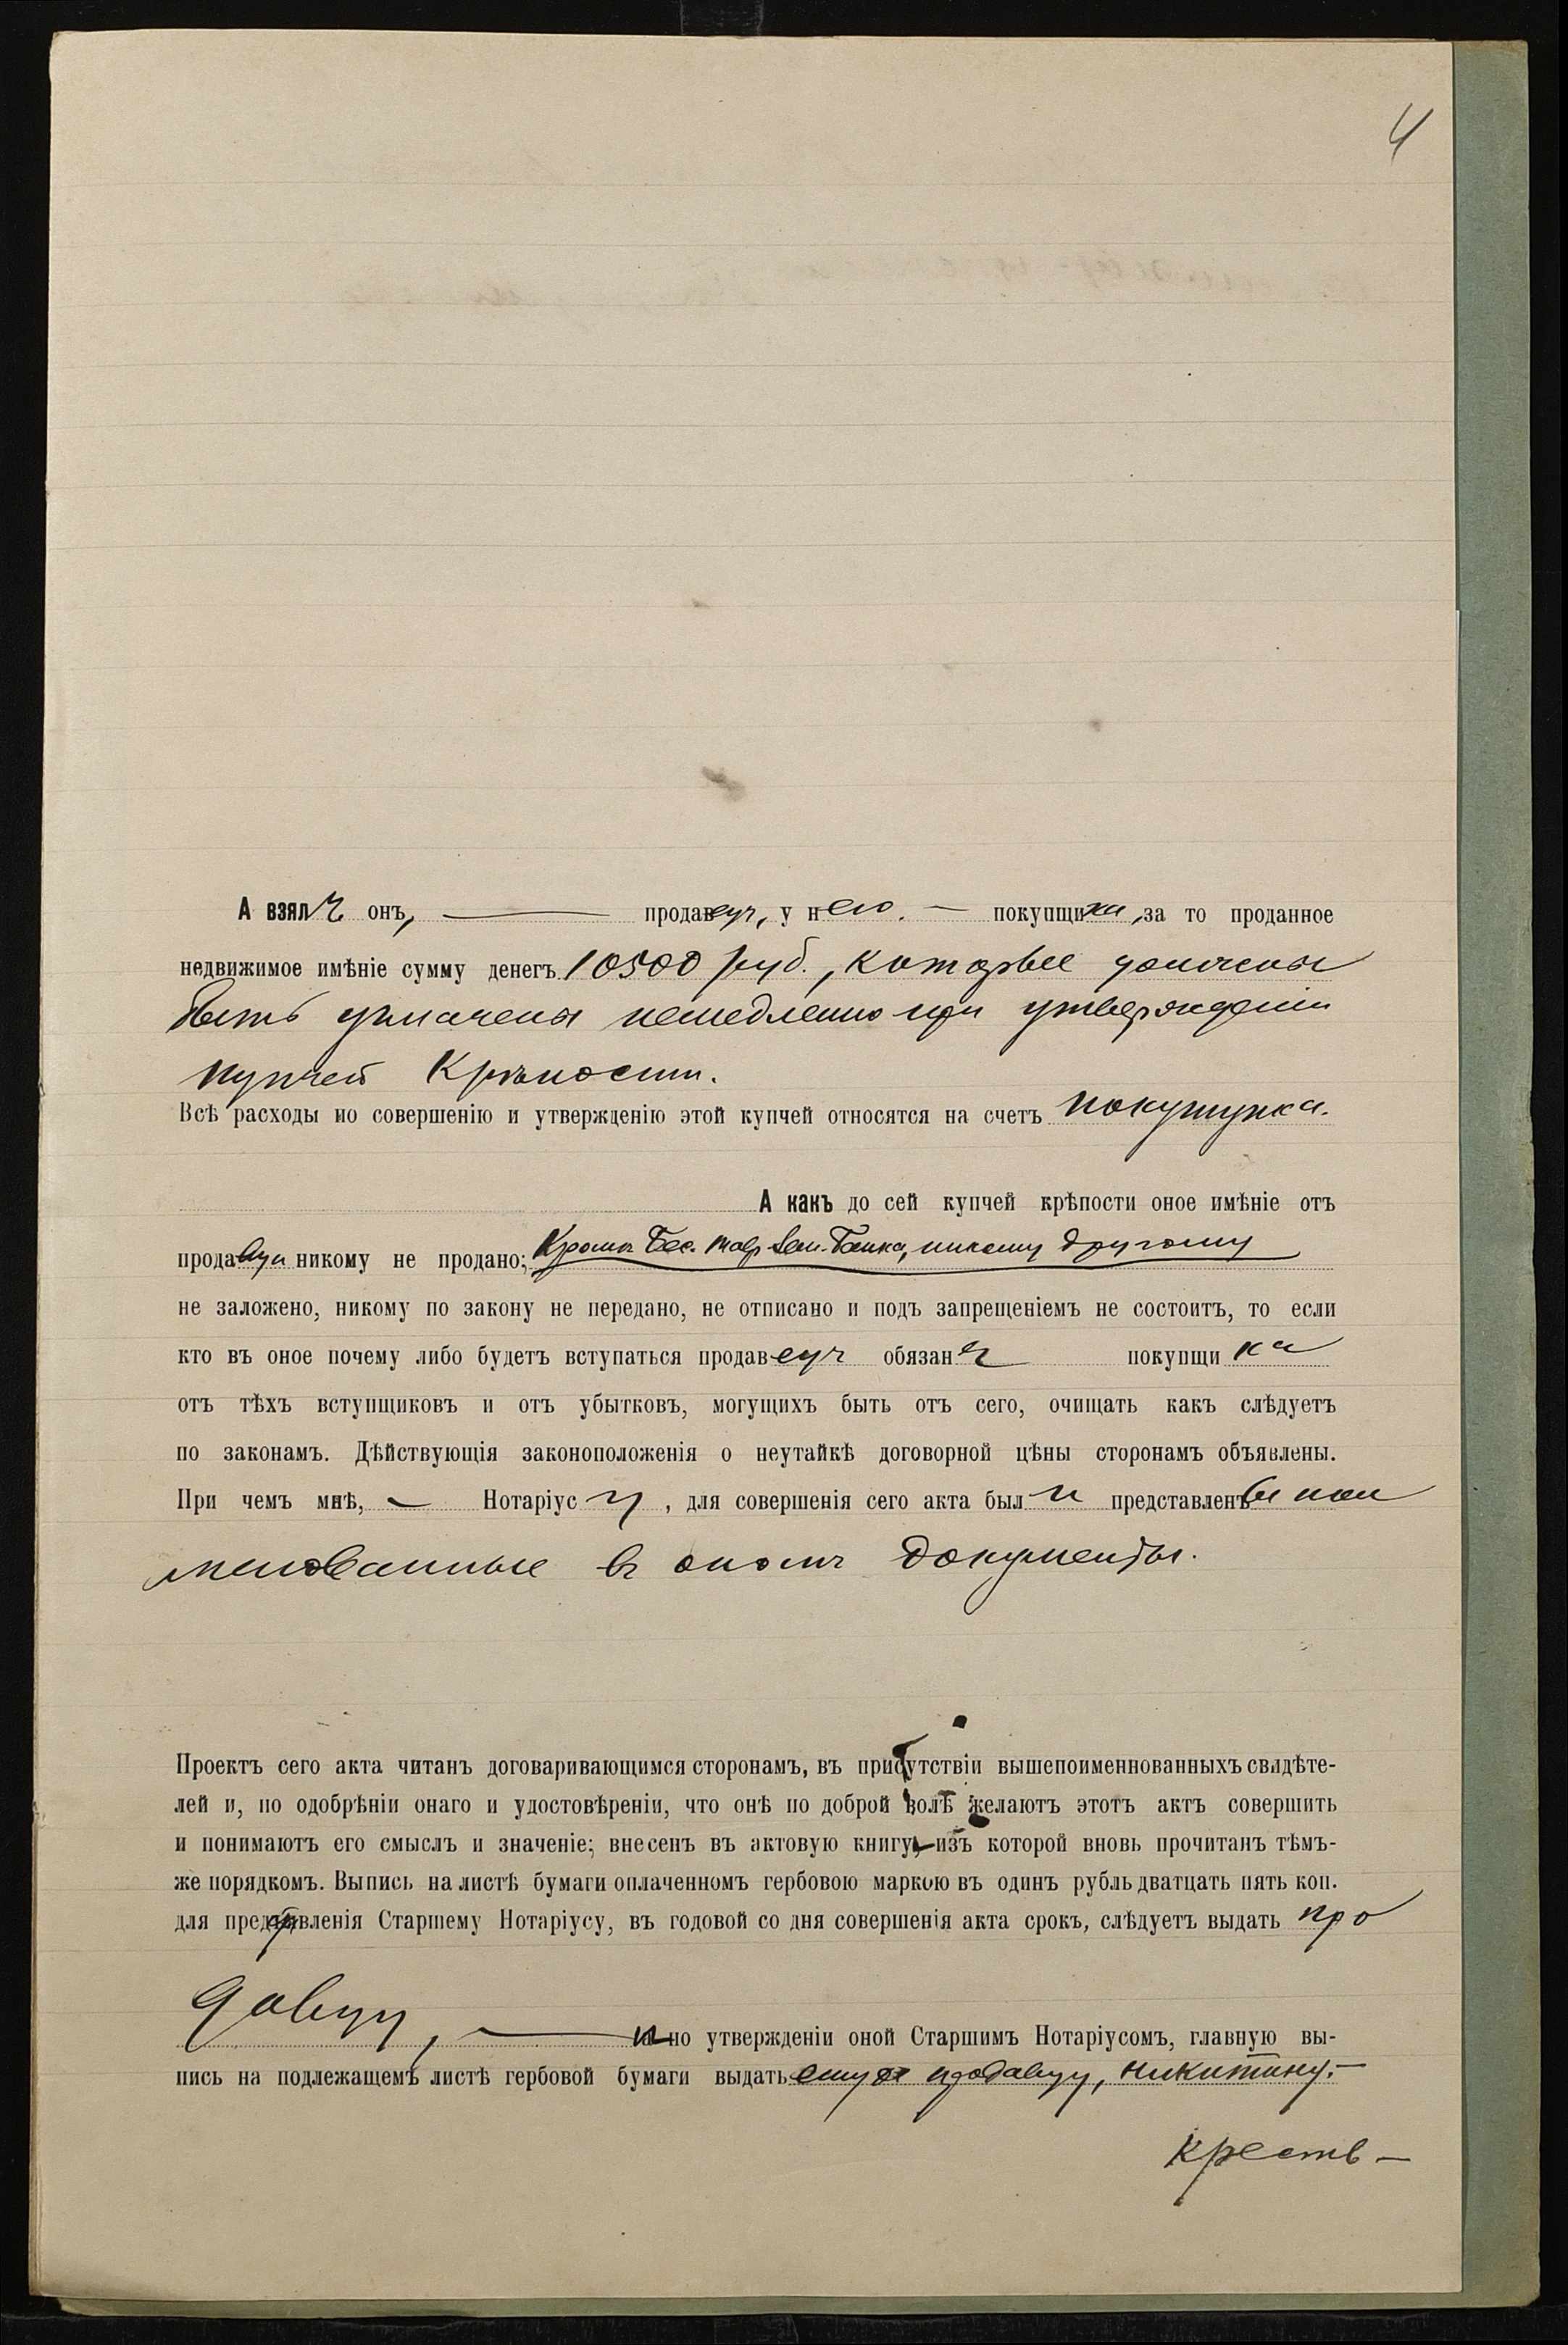 4
А взялъ онъ, — продавецъ, у него — покупщика, за то проданное
недвижимое имѣніе сумму денегъ 10500 руб., которые должны
быть уплачены немедленно при утвержденіи
купчей крѣпости.
Всѣ расходы ио совершенію и утвержденію этой купчей относятся на счетъ покупщика.
А какъ до сей купчей крѣпости оное имѣніе отъ
продавца никому не продано; Кромѣ Бес. Тавр. Зем. Банка, никому другому
не заложено, никому по закону не передано, не отписано и подъ запрещеніемъ не состоитъ, то если
кто въ оное почему либо будетъ вступаться продавецъ обязанъ покупщика
отъ тѣхъ вступщиковъ и отъ убытковъ, могущихъ быть отъ сего, очищать какъ слѣдуетъ
по законамъ. Дѣйствующія законоположенія о неутайкѣ договорной цѣны сторонамъ объявлены.
При чемъ мнѣ, — Нотаріусу, для совершенія сего акта были представлены пои
менованные въ ономъ документы.
Проектъ сего акта читанъ договаривающимся сторонамъ, въ присутствіи вышепоименнованныхъ свидѣте-
лей и, по одобрѣніи онаго и удостовѣреніи, что онѣ по доброй волѣ желаютъ этотъ актъ совершить
и понимаютъ его смыслъ и значеніе; внесенъ въ актовую книгу, изъ которой вновь прочитанъ тѣмъ-
же порядкомъ. Выпись на листѣ бумаги оплаченномъ гербовою маркою въ одинъ рубль дватцать пять коп.
для представленія Старшему Нотаріусу, въ годовой со дня совершенія акта срокъ, слѣдуетъ выдать про
давцу, — а по утвержденіи оной Старшимъ Нотаріусомъ, главную вы-
пись на подлежащемъ листѣ гербовой бумаги выдать ему продавцу, Никитину. —
Кресть —